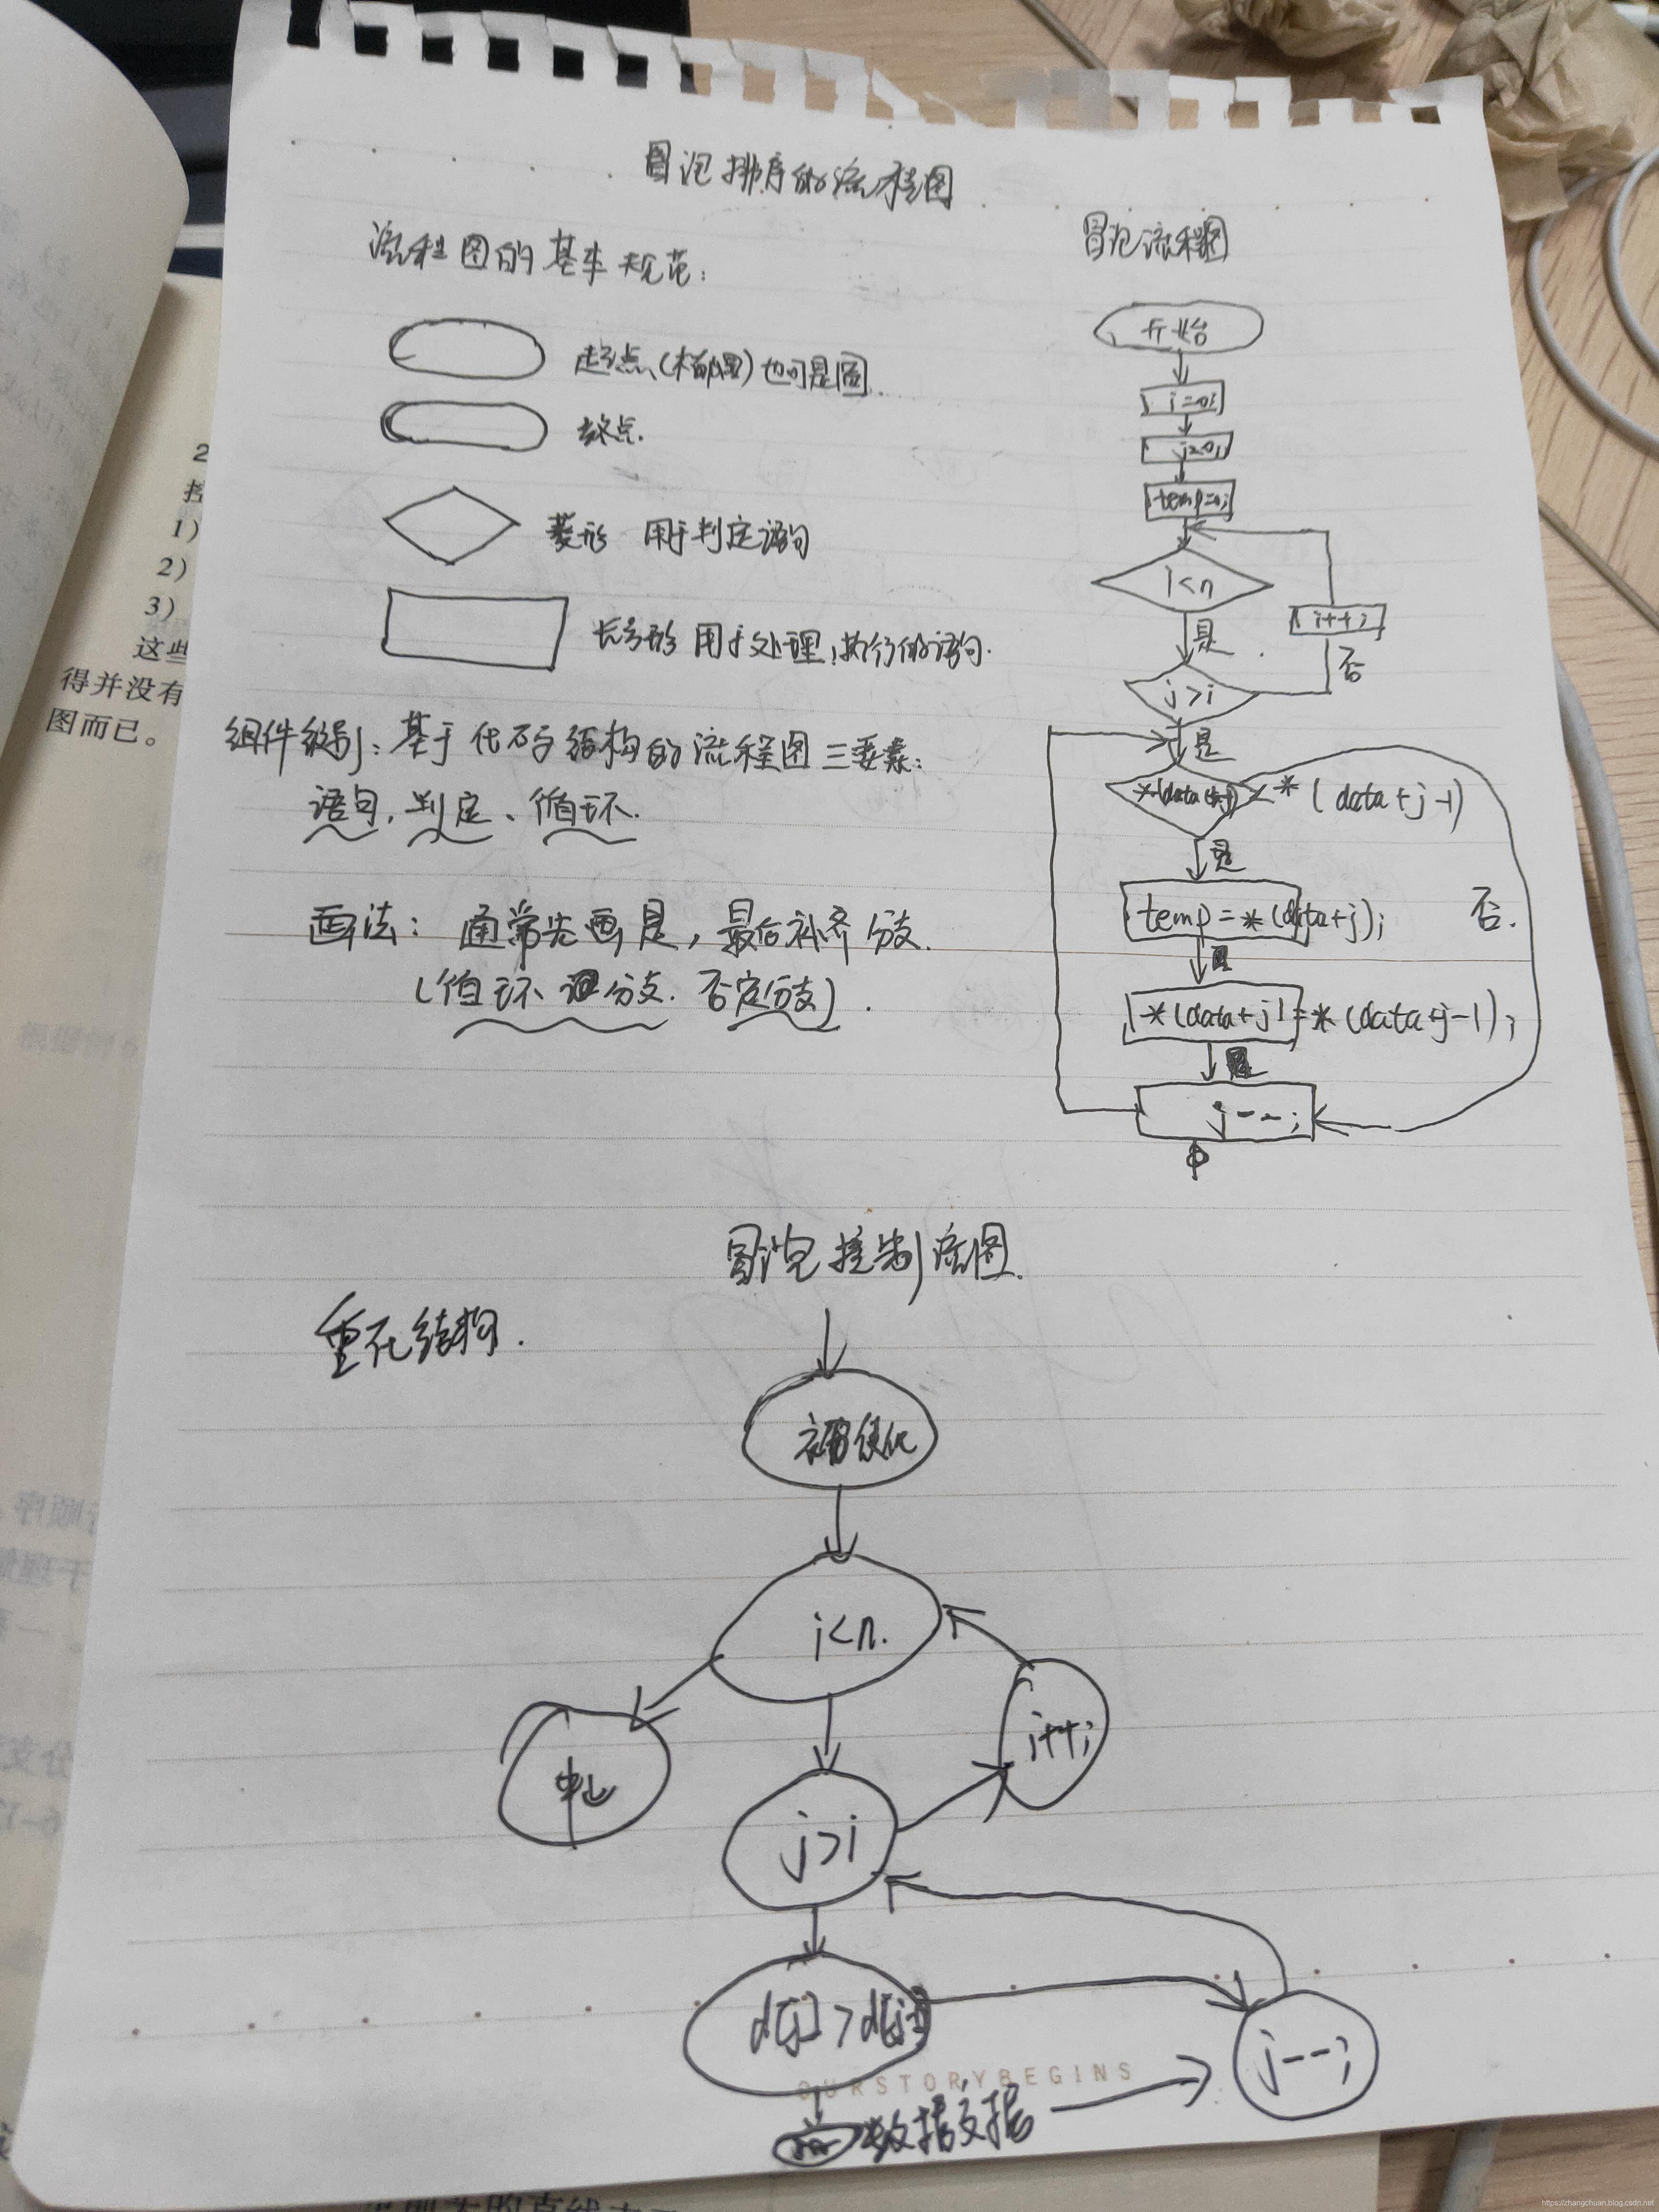 冒泡排序的流程图
流程图的基本规范:
起点(椭圆)也可是圆.
终点.
菱形 用于判定语句
长方形 用于处理,执行的语句.
组件级别:基于代码结构的流程图三要素:
语句,判定、循环.
画法:通常先画是,最后补齐分支.
(循环 分支.否定分支).
冒泡流程图
开始
i=0;
j=0;
temp=0;
i<n
i++;
是
否
j>i
是
*(data+j)<*(data+j-1)
是
temp=*(data+j);
否.
*(data+j)=*(data+j-1);
j--;
冒泡控制流图.
重在结构.
i<n.
i++;
中止
j>i
d[j]>d[j-1]
j--;
OURSTORYBEGINS
数据交换
2
1)
2)
3)
这些
得并没有
图而已。
https://zhangchuan.blog.csdn.net